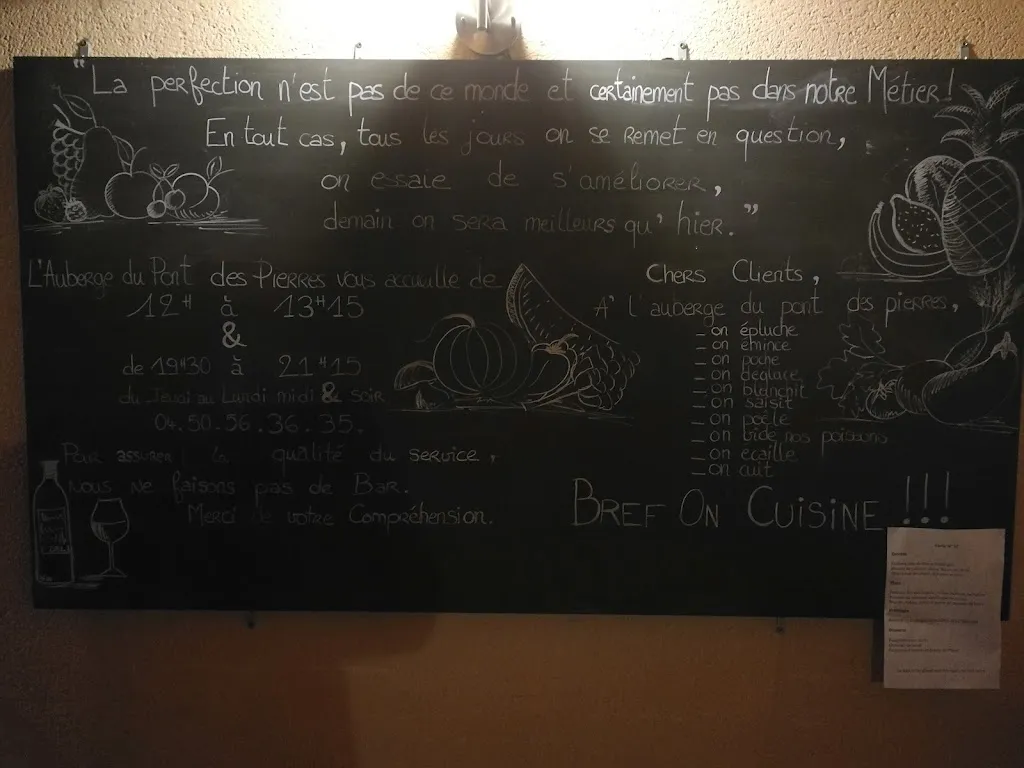 "La perfection n'est pas de ce monde et certainement pas dans notre Métier!
En tout cas, tous les jours on se remet en question,
on essaie de s'améliorer,
demain on sera meilleurs qu'hier."
L'Auberge du Pont des Pierres vous accuille de
12H à 13H15
&
de 19H30 à 21H15
du Jeudi au Lundi midi & soir
04.50.56.36.35.
Pour assurer la qualité du service,
nous ne faisons pas de Bar.
Merci de votre Compréhension.
Chers Clients,
A' l'auberge du pont des pierres,
_ on épluche
_ on émince
_ on poche
_ on déglace
_ on blanchit
_ on saisit
_ on poêle
_ on vide nos poissons
_ on écaille
_ on cuit
Bref On Cuisine !!!